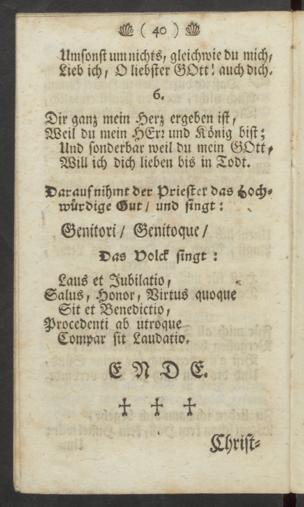 ( 40 )
Umsonst um nichts, gleichwie du mich,
Lieb ich, O liebster GOtt! auch dich.
6.
Dir ganz mein Herz ergeben ist,
Weil du mein HErr und König bist;
Und sonderbar weil du mein GOtt,
Will ich dich lieben bis in Todt.
Darauf nihmt der Priester das Hoch-
würdige Gut / und singt:
Genitori / Genitoque /
Das Volck singt:
Laus et Jubilatio,
Salus, Honor, Virtus quoque
Sit et Benedictio,
Procedenti ab utroque
Compar sit Laudatio.
ENDE.
Christ-